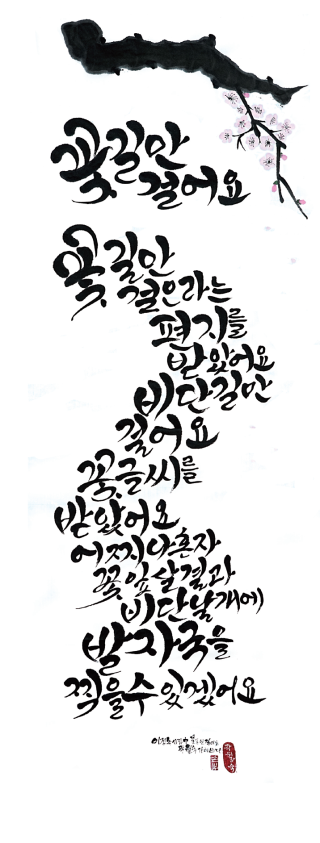 꽃길만
걸어요
꽃길만
걸으라는
편지를
받았어요
비단길만
걸어요
꽃글씨를
받았어요
어찌 나 혼자
꽃잎 살결과
비단 날개에
발자국을
찍을 수 있겠어요